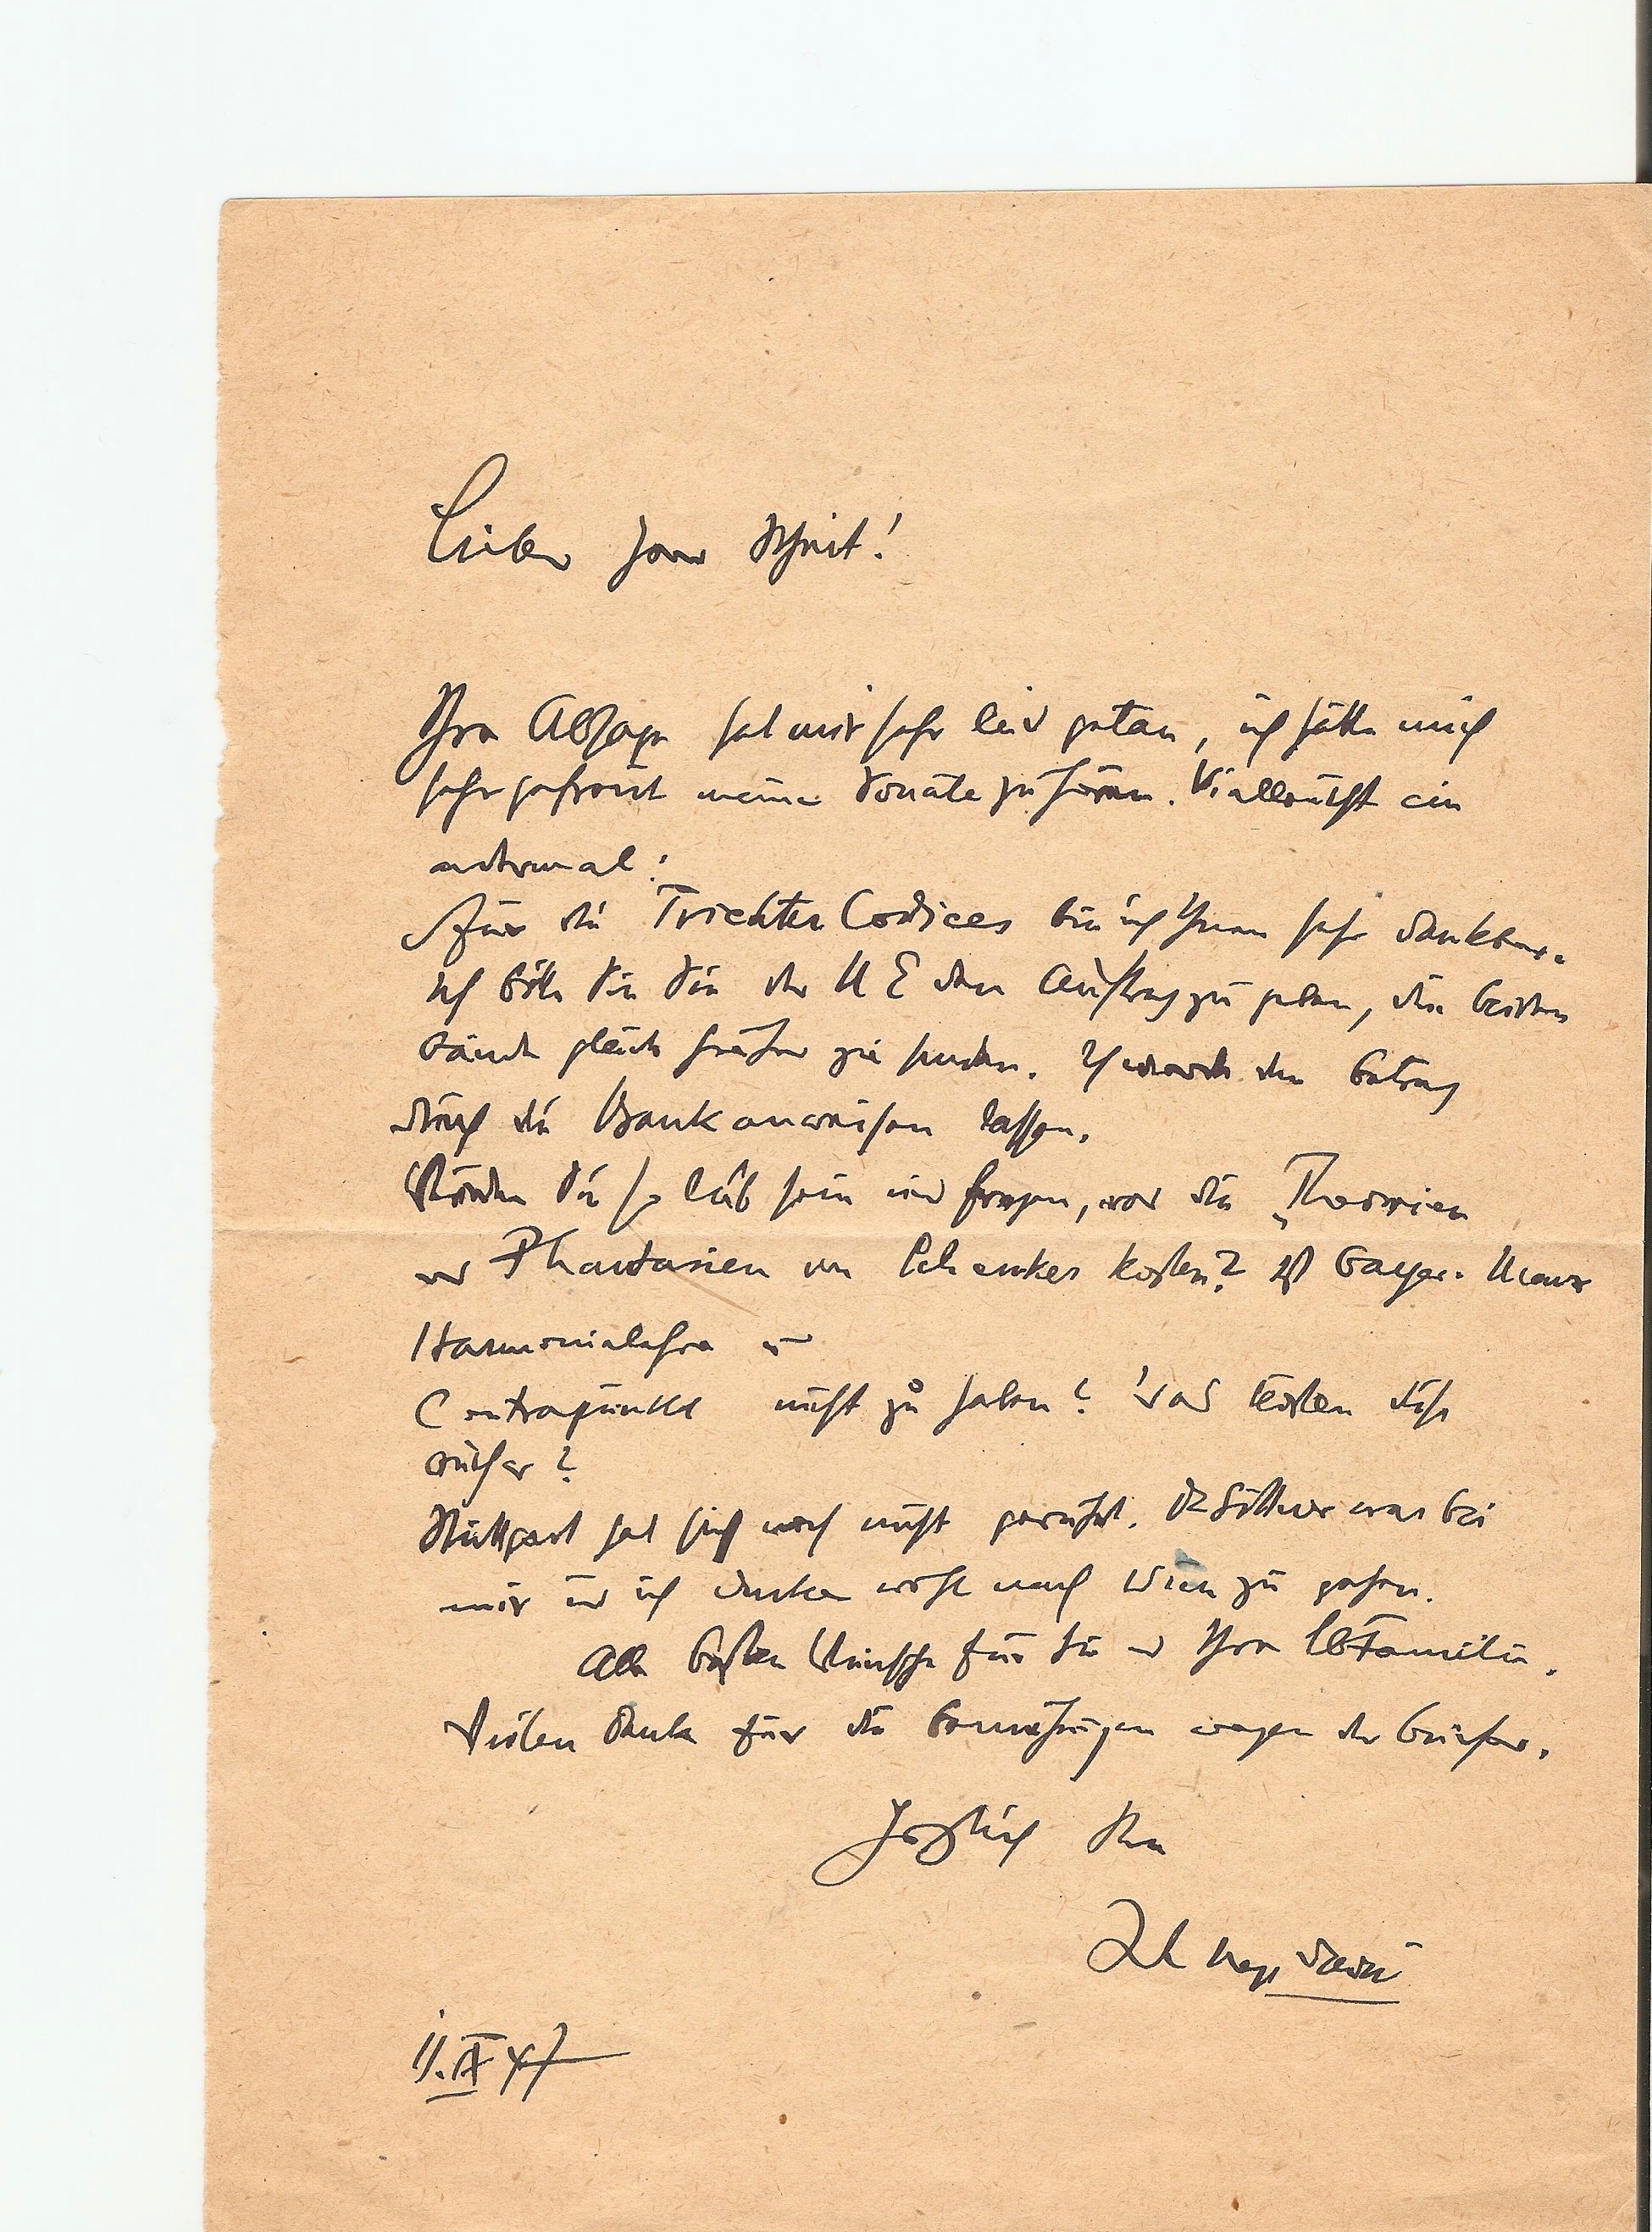 Lieber Herr Scheit!
Ihre Absage hat mir sehr leid getan, ich hätte mich
sehr gefreut meine Sonate zu hören. Vielleicht ein
andermal!
Für die Trienter Codices bin ich Ihnen sehr dankbar.
Ich bitte Sie der U E den Auftrag zu geben, die beiden
Bände gleich hierher zu senden. Ich werde den Betrag
durch die Bank anweisen lassen.
Würden Sie so lieb sein und fragen, was die
und Phantasien von Schenker kosten? Ist
Harmonielehre u
Contrapunkt nicht zu haben? Was kosten diese
Bücher?
Stuttgart hat sich noch nicht gerührt. Dr Sittner war bei
mir und ich denke wohl nach Wien zu gehen.
Alle besten Wünsche für Sie und Ihre lb Familie.
Vielen Dank für die Bemühungen wegen der Bücher.
Herzlich Ihr
Joh Nep David
11. IX 47